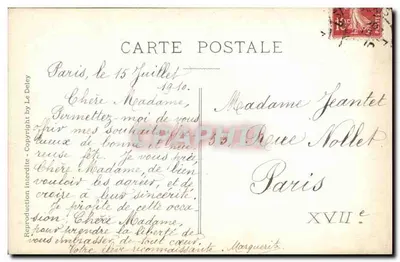 CARTE POSTALE
Paris, le 15 Juillet
1910.
Chère Madame,
Permettez-moi de vous
mes souhaits
de bonne et
reuse fête. Je vous prie,
Chère Madame, de bien
vouloir les agréer, et de
croire à leur sincérité.
Je profite de cette occa
sion, Chère Madame,
pour prendre la liberté de
vous embrasser de tout cœur.
Votre élève reconnaissante. Marguerite
Madame Jeantet
53, Rue Nollet
Paris
XVIIe
Reproduction interdite - Copyright by Le Deley